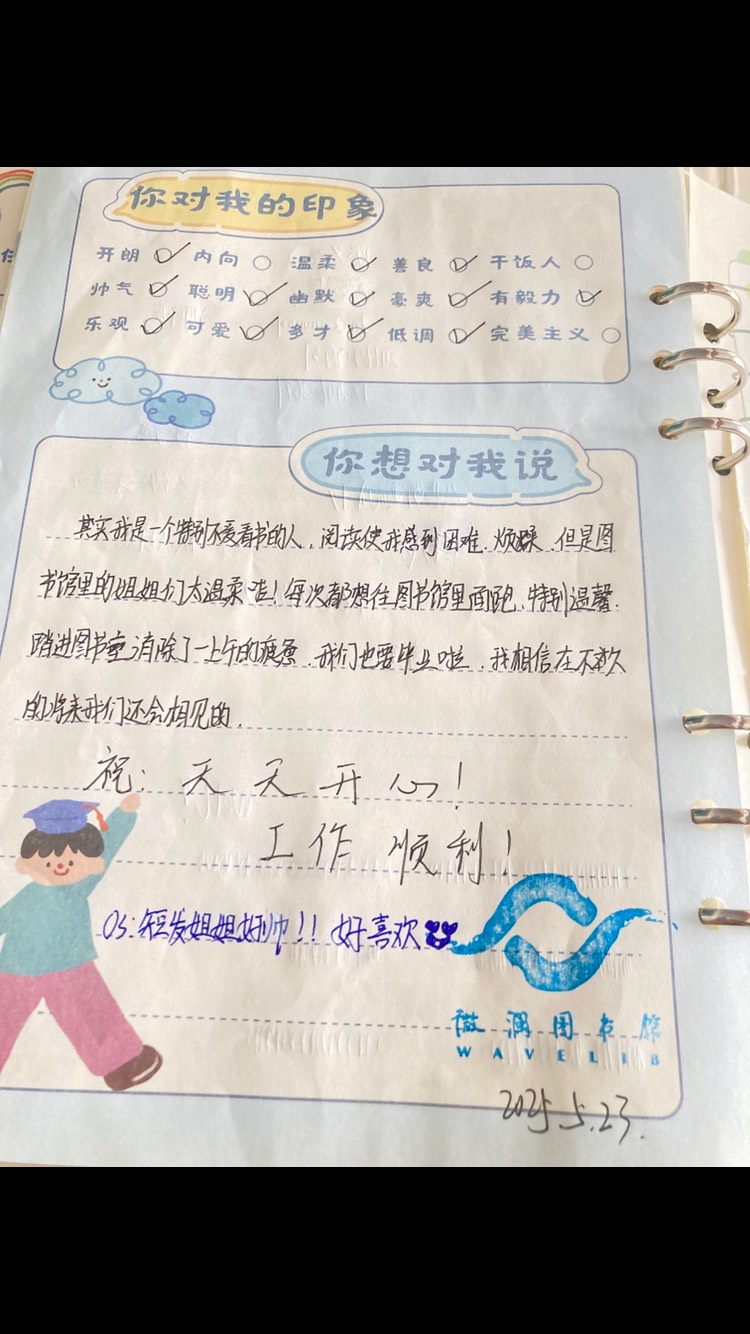 你对我的印象
开朗 内向 温柔 善良 干饭人
帅气 聪明 幽默 豪爽 有毅力
乐观 可爱 多才 低调 完美主义
你想对我说
其实我是一个特别不爱看书的人,阅读使我感到困难、烦躁,但是图
书馆里的姐姐们太温柔啦!每次都想往图书馆里面跑、特别温馨.
踏进图书室消除了一上午的疲惫,我们也要毕业啦,我相信在不久
的将来我们还会相见的.
祝: 天天开心!
工作顺利!
Os:短发姐姐好帅!!好喜欢
微澜图书馆
WAVELIB
2025.5.23.